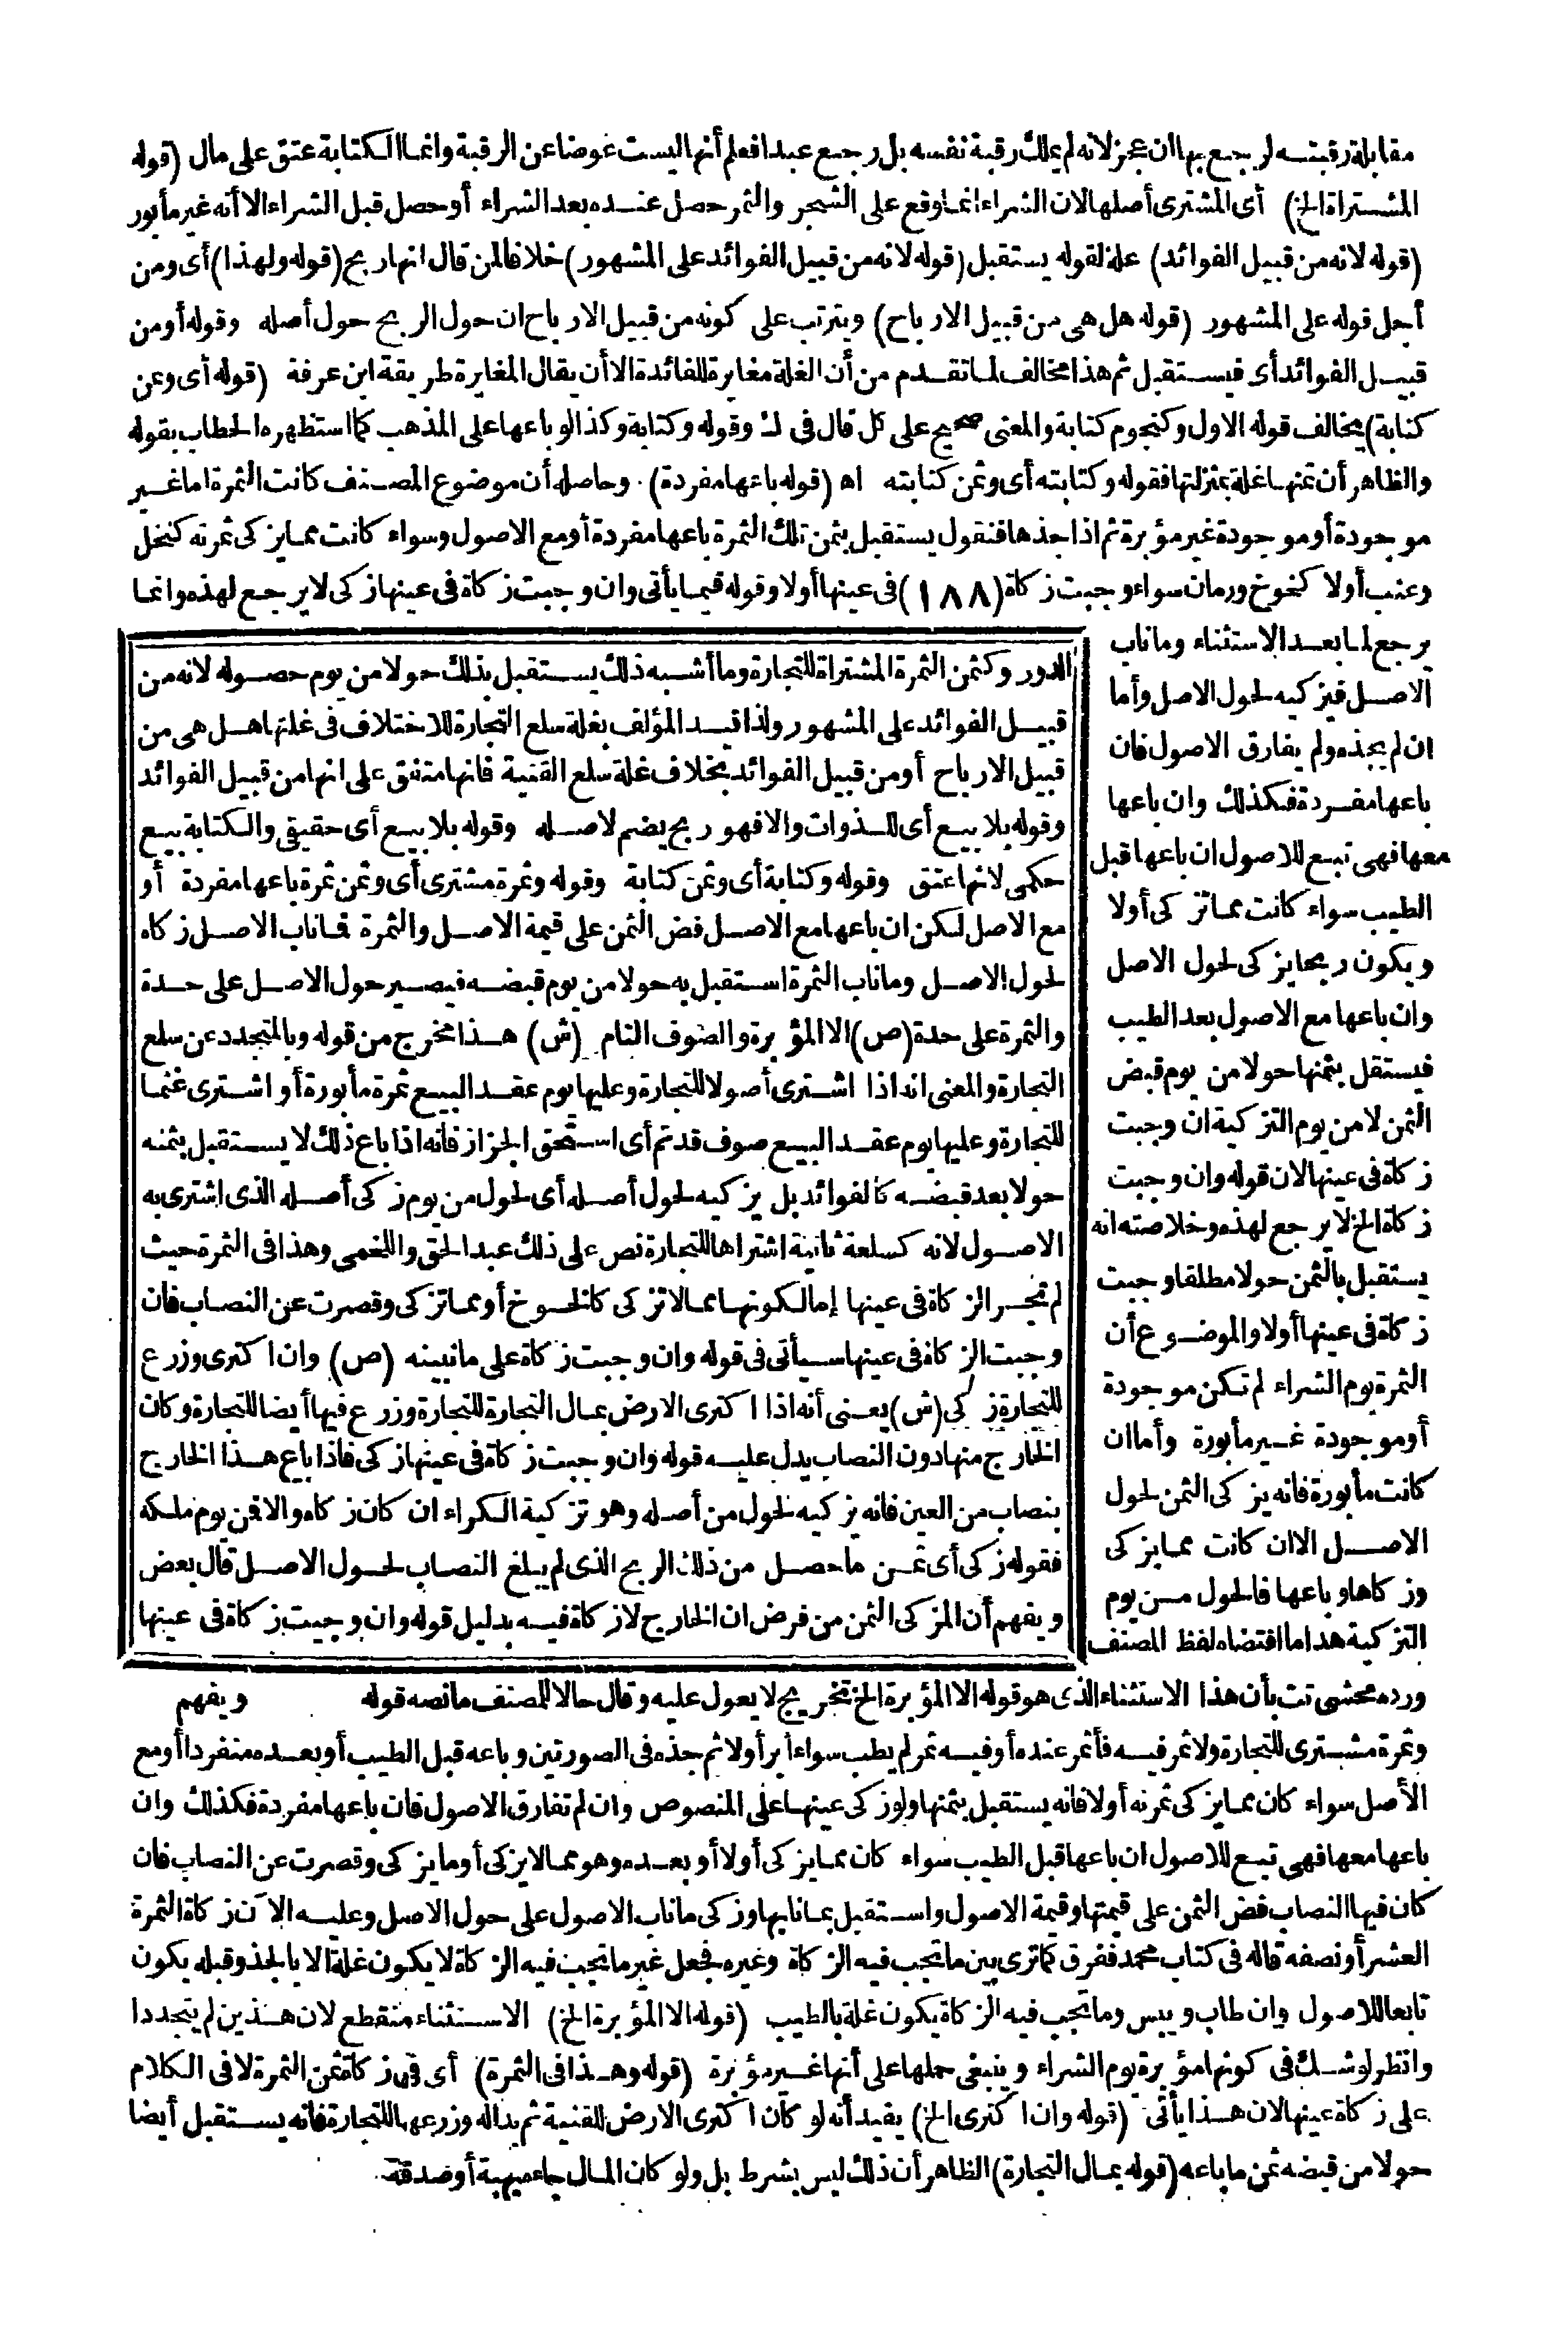 مقابلة رقبته لرجع بها ان عجز لانه لم يملك رقبة نفسه بل رجع عبدا فعلم أنها ليست عوضا عن الرقبة وانما الكتابة عتق على مال (قوله
المشتراة الخ) أى المشترى أصلها لان الشراء انما وقع على الشجر والثمر حصل عنده بعد الشراء أو حصل قبل الشراء الا أنه غير مأبور
(قوله لانه من قبيل الفوائد) علة لقوله يستقبل (قوله لانه من قبيل الفوائد على المشهور) خلافا لمن قال انها ربح (قوله ولهذا) أى ومن
أجل قوله على المشهور (قوله هل هى من قبيل الارباح) ويترتب على كونه من قبيل الارباح ان حول الربح حول أصله وقوله أو من
قبيل الفوائد أى فيستقبل ثم هذا مخالف لما تقدم من أن الغلة مغايرة للفائدة الا أن يقال المغايرة طريقة ابن عرفة (قوله أى وعن
كتابة) يخالف قوله الاول وكنجوم كتابة والمعنى صحيح على كل قال فى ك وقوله وكتابة وكذا لو باعها على المذهب كما استظهره الحطاب بقوله
والظاهر أن ثمنها غلة بمنزلتها فقوله وكتابته أى وثمن كتابته اه (قوله باعها مفردة) وحاصله أن موضوع المصنف كانت الثمرة اما غير
موجودة أو موجودة غير مؤبرة ثم اذا جذها فنقول يستقبل بثمن تلك الثمرة باعها مفردة أو مع الاصول وسواء كانت مما يزكى ثمرته كنخل
وعنب أولا كخوخ ورمان سواء وجبت زكاة (١٨٨) فى عينها أولا وقوله فيما يأتى وان وجبت زكاة فى عينها زكى لا يرجع لهذه وانما
يرجع لما بعد الاستثناء وما ناب
الاصل فيزكيه لحول الاصل وأما
ان لم يجذه ولم يفارق الاصول فان
باعها مفردة فكذلك وان باعها
معها فهى تبع للاصول ان باعها قبل
الطيب سواء كانت مما تزكى أولا
ويكون ربحا يزكى لحول الاصل
وان باعها مع الاصول بعد الطيب
فيستقل بثمنها حولا من يوم قبض
الثمن لا من يوم التزكية ان وجبت
زكاة فى عينها لان قوله وان وجبت
زكاة الخ لا يرجع لهذه وخلاصته انه
يستقبل بالثمن حولا مطلقا وجبت
زكاة فى عينها أولا والموضوع أن
الثمرة يوم الشراء لم تكن موجودة
أو موجودة غير مأبورة وأما ان
كانت مأبورة فانه يزكى الثمن لحول
الاصل الا ان كانت مما يزكى
وزكاها وباعها فالحول من يوم
التزكية هذا ما اقتضاه لفظ المصنف
الدور وكثمن الثمرة المشتراة للتجارة وما أشبه ذلك يستقبل بذلك حولا من يوم حصوله لانه من
قبيل الفوائد على المشهور ولذا قيد المؤلف بغلة سلع التجارة للاختلاف فى غلتها هل هى من
قبيل الارباح أو من قبيل الفوائد بخلاف غلة سلع القنية فانها متفق على انها من قبيل الفوائد
وقوله بلا بيع أى للذوات والا فهو ربح يضم لاصله وقوله بلا بيع أى حقيقى والكتابة بيع
حكمى لانها عتق وقوله وكتابة أى وثمن كتابة وقوله وثمرة مشترى أى وثمن ثمرة باعها مفردة أو
مع الاصل لكن ان باعها مع الاصل فض الثمن على قيمة الاصل والثمرة فما ناب الاصل زكاه
لحول الاصل وما ناب الثمرة استقبل به حولا من يوم قبضه فيصير حول الاصل على حدة
والثمرة على حدة (ص) الا المؤبرة والصوف التام (ش) هذا مخرج من قوله وبالمتجدد عن سلع
التجارة والمعنى انه اذا اشترى أصولا للتجارة وعليها يوم عقد البيع ثمرة مأبورة أو اشترى غنما
للتجارة وعليها يوم عقد البيع صوف قد تم أى استحق الجزاز فانه اذا باع ذلك لا يستقبل بثمنه
حولا بعد قبضه كالفوائد بل يزكيه لحول أصله أى لحول من يوم زكى أصله الذى اشترى به
الاصول لانه كسلعة ثانية اشتراها للتجارة نص على ذلك عبد الحق واللخمى وهذا فى الثمرة حيث
لم تجر الزكاة فى عينها إما لكونها مما لا تزكى كالخوخ أو مما تزكى وقصرت عن النصاب فان
وجبت الزكاة فى عينها سيأتى فى قوله وان وجبت زكاة على ما نبينه (ص) وان اكترى وزرع
للتجارة زكى (ش) يعنى أنه اذا اكترى الارض بمال التجارة للتجارة وزرع فيها أيضا للتجارة وكان
الخارج منها دون النصاب يدل عليه قوله وان وجبت زكاة فى عينها زكى فاذا باع هذا الخارج
بنصاب من العين فانه يزكيه لحول من أصله وهو تزكية الكراء ان كان زكاه والا فمن يوم ملكه
فقوله زكى أى ثمن ما حصل من ذلك الربح الذى لم يبلغ النصاب لحول الاصل قال بعض
ويفهم أن المزكى الثمن من فرض ان الخارج لا زكاة فيه بدليل قوله وان وجبت زكاة فى عينها
ورده محشى تت بأن هذا الاستثناء الذى هو قوله الا المؤبرة الخ تخريج لا يعول عليه وقال حالا للمصنف ما نصه قوله ويفهم
وثمرة مشترى للتجارة ولا ثمر فيه فأثمر عنده أو فيه ثمر لم يطب سواء أبر أولا ثم جذه فى الصورتين وباعه قبل الطيب أو بعده منفردا أو مع
الأصل سواء كان مما يزكى ثمرته أولا فانه يستقبل بثمنها ولو زكى عينها على المنصوص وان لم تفارق الاصول فان باعها مفردة فكذلك وان
باعها معها فهى تبع للاصول ان باعها قبل الطيب سواء كان مما يزكى أولا أو بعده وهو مما لا يزكى أو ما يزكى وقصرت عن النصاب فان
كان فيها النصاب فض الثمن على قيمتها وقيمة الاصول واستقبل بما نابها وزكى ما ناب الاصول على حول الاصل وعليه الآن زكاة الثمرة
العشر أو نصفه قاله فى كتاب محمد ففرق كما ترى بين ما تجب فيه الزكاة وغيره فجعل غير ما تجب فيه الزكاة لا يكون غلة الا بالجذ وقبله يكون
تابعا للاصول وان طاب ويبس وما تجب فيه الزكاة يكون غلة بالطيب (قوله الا المؤبرة الخ) الاستثناء منقطع لان هذين لم يتجددا
وانظر لو شك فى كونها مؤبرة يوم الشراء وينبغى حملها على أنها غير مؤبرة (قوله وهذا فى الثمرة) أى فى زكاة ثمن الثمرة لا فى الكلام
على زكاة عينها لان هذا يأتى (قوله وان اكترى الخ) يفيد أنه لو كان اكترى الارض للقنية ثم بدا له وزرعها للتجارة فانه يستقبل أيضا
حولا من قبضه ثمن ما باعه (قوله بمال التجارة) الظاهر أن ذلك ليس بشرط بل ولو كان المال جاءه بهبة أو صدقة